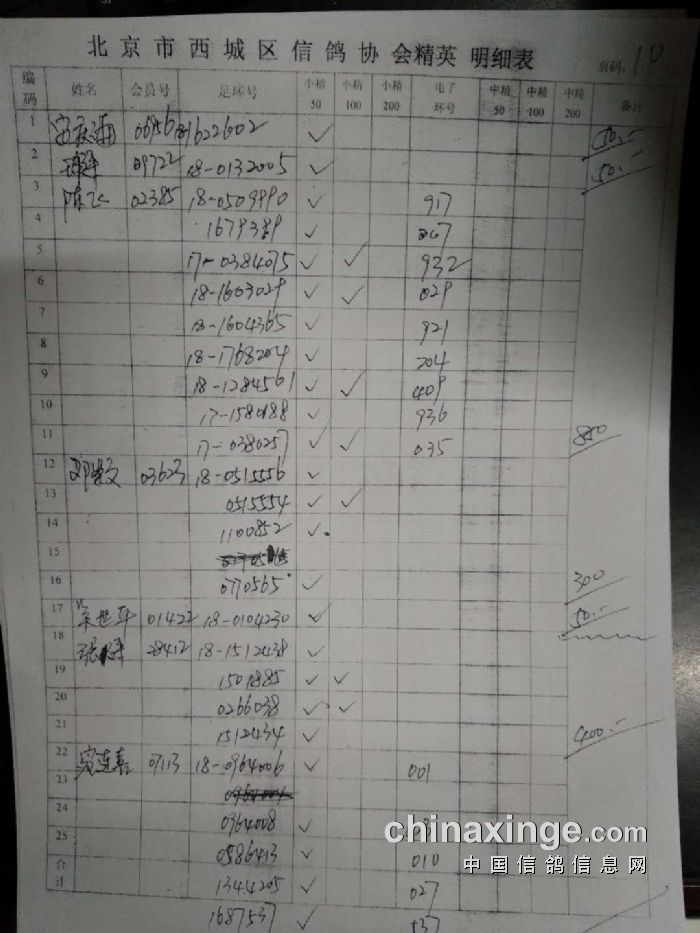 北京市西城区信鸽协会精英 明细表
页码: 10
编码 姓名 会员号 足环号 小精50 小精100 小精200 电子环号 中精50 中精100 中精200 备注
1 ✓ 50.-
2 09722 18-0132005 ✓ 50.-
3 陈飞 02385 18-0509990 ✓ 917
4 1679389 ✓ 067
5 17-0384075 ✓ ✓ 932
6 18-1603029 ✓ ✓ 029
7 18-1604365 ✓ 921
8 18-1768204 ✓ 204
9 18-1284561 ✓ ✓ 409
10 17-1580188 ✓ 936
11 17-0380257 ✓ ✓ 035
12 03623 18-0515556 ✓
13 0515554 ✓ ✓
14 1100852 ✓
15
16 0770565 ✓ 300
17 01422 18-0104230 ✓ 50.-
18 28412 18-1512438 ✓
19 1501885 ✓ ✓
20 0266038 ✓ ✓
21 1512434 ✓ 400.-
22 07113 18-0964006 ✓ 001
23
24 0964008 ✓
25 0586413 ✓ 010
合计 1344205 ✓ 027
1687537 ✓ 537
chinaxinge.com
中国信鸽信息网